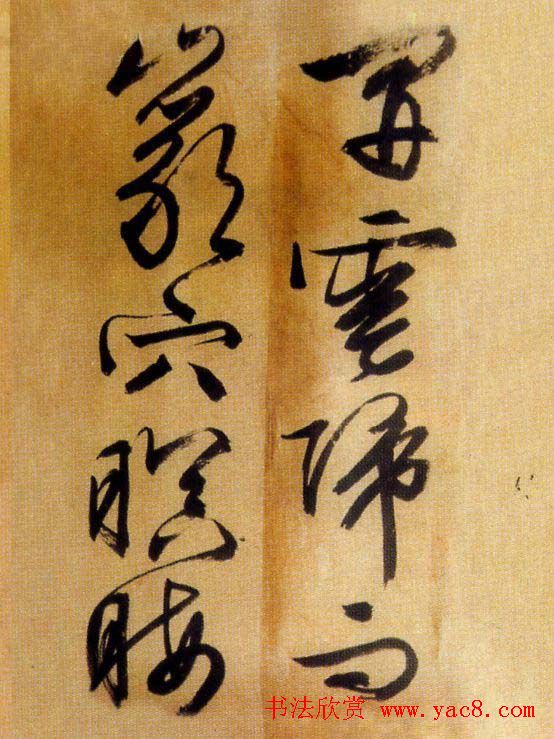 開雲歸而
巖穴暝晦
书法欣赏 www.yac8.com